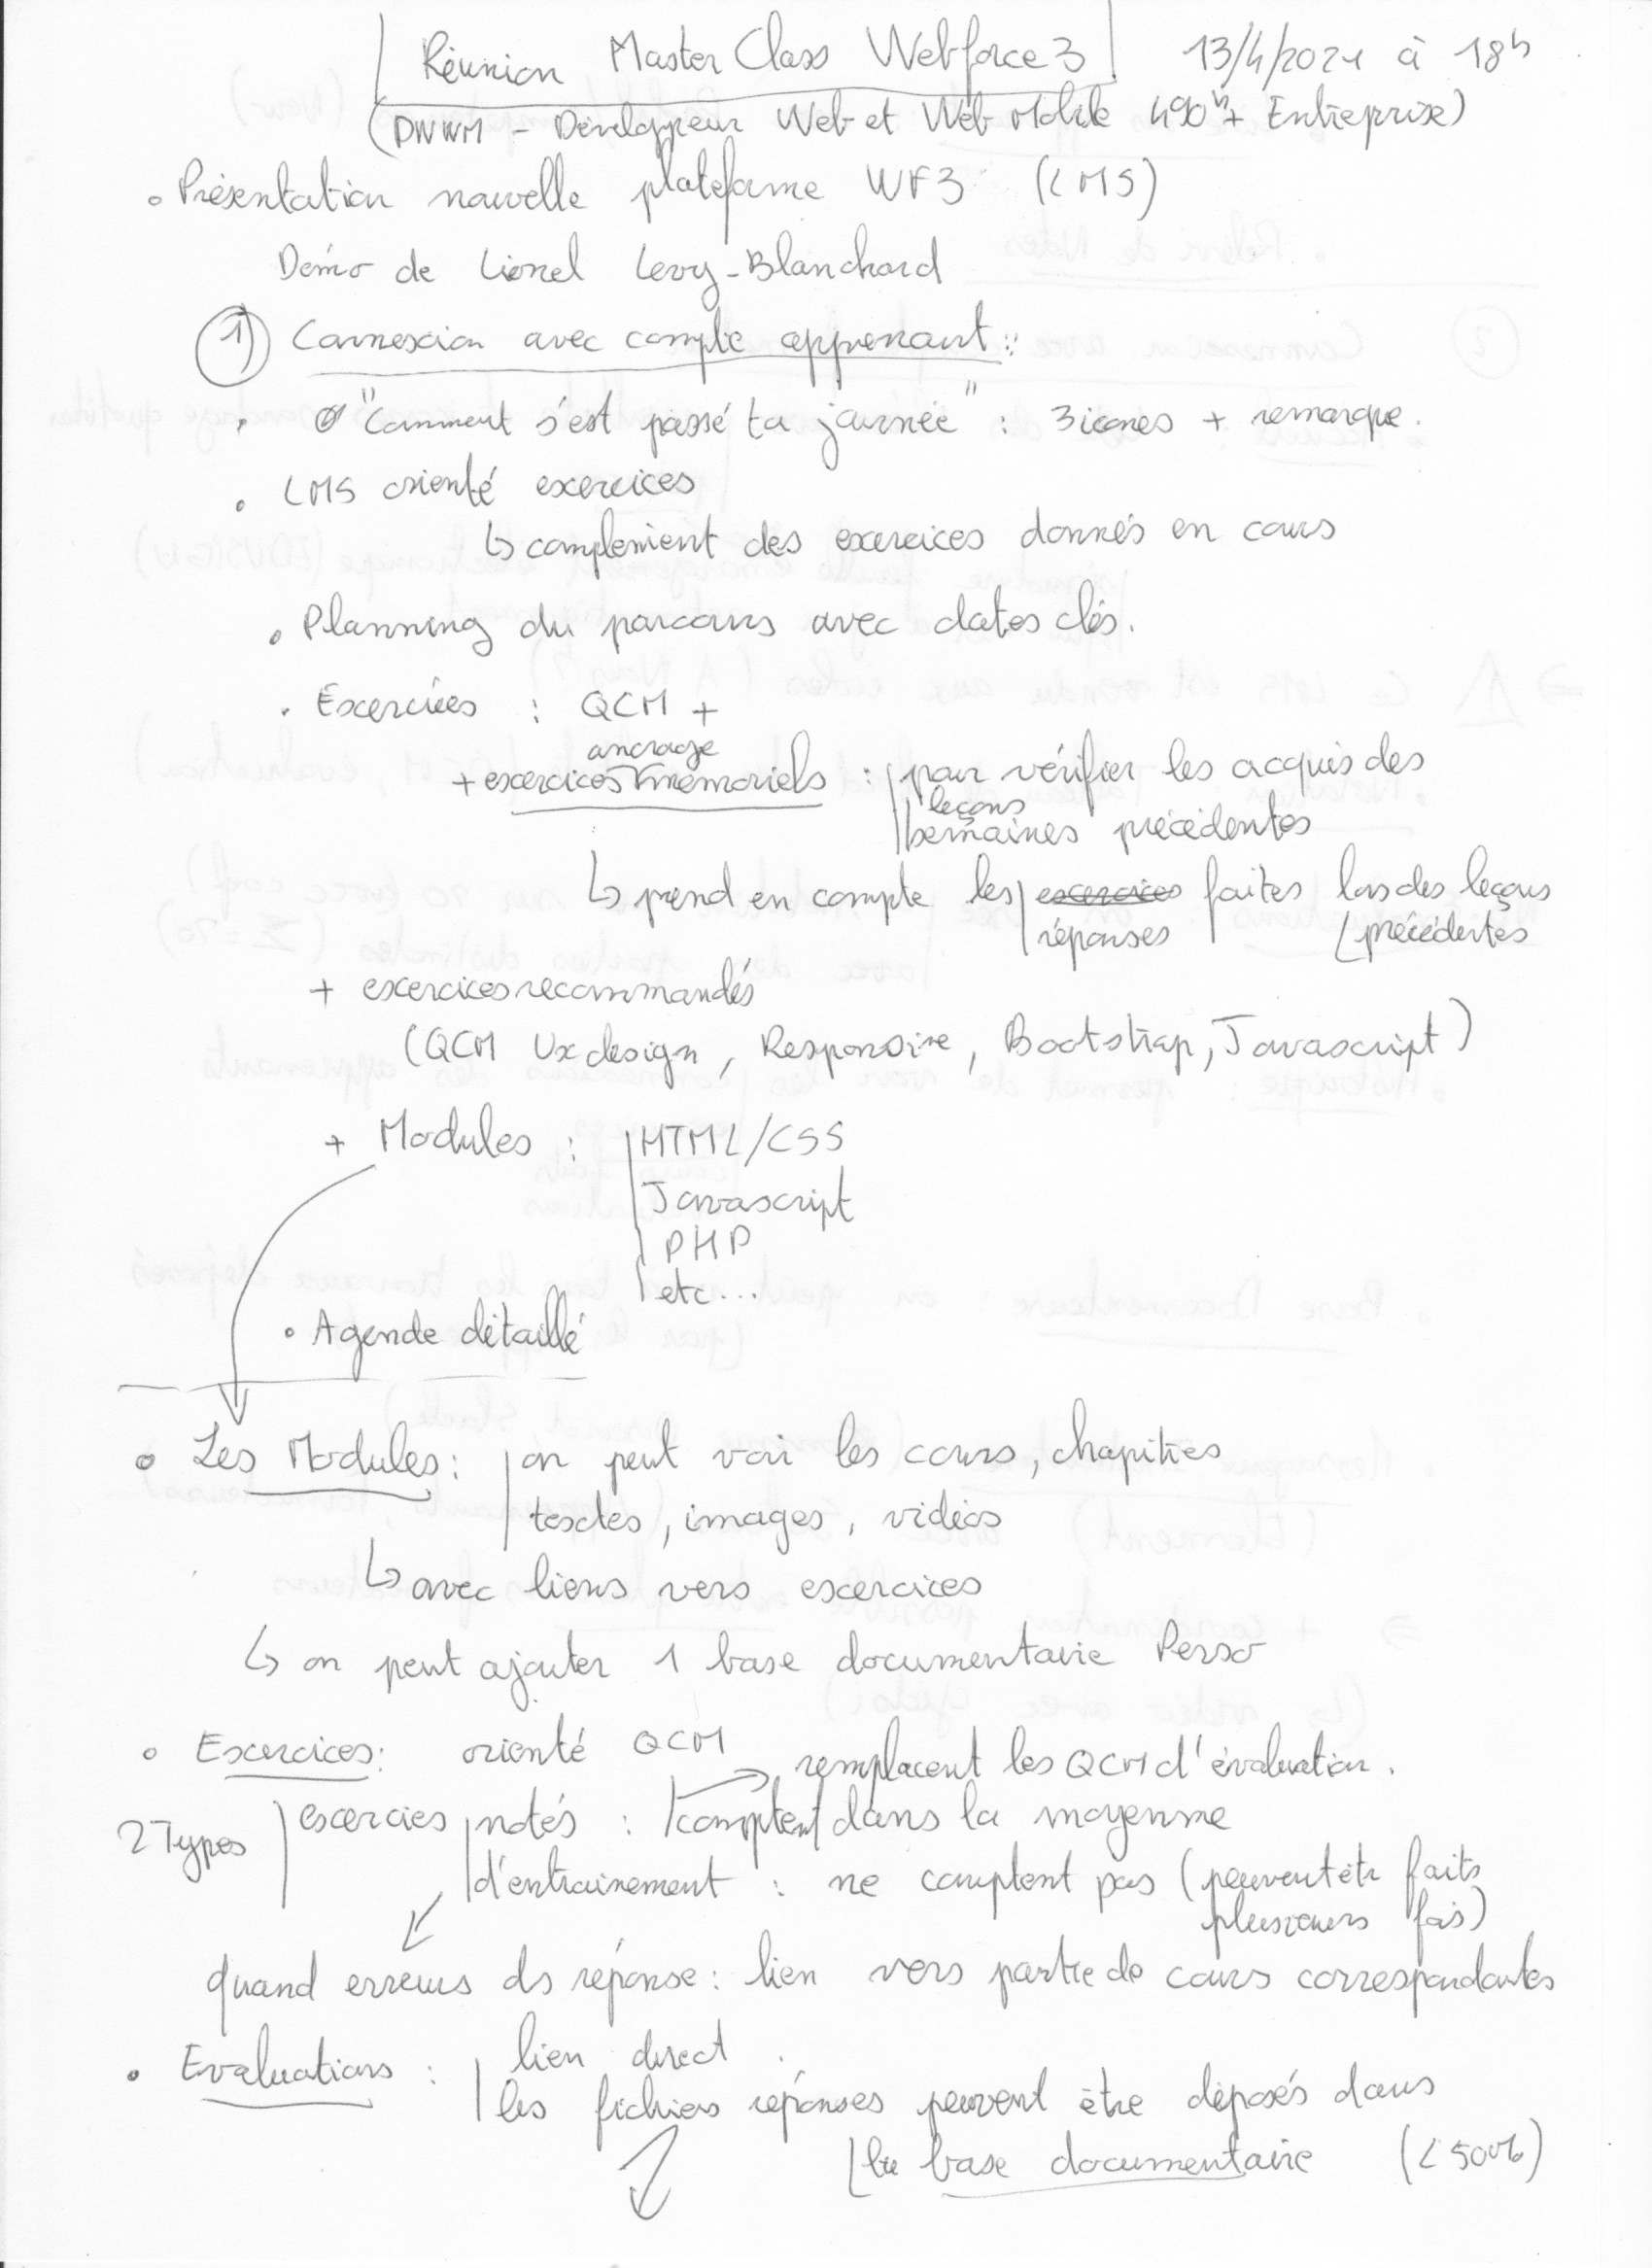 Réunion Master Class Webforce3 13/4/2021 à 18h
(DWWM - Développeur Web et Web Mobile 490h + Entreprise)
• Présentation nouvelle plateforme WF3 (LMS)
Démo de Lionel Levy-Blanchard
1) Connexion avec compte apprenant :
• "Comment s'est passé ta journée" : 3 icones + remarque.
• LMS orienté exercices
↳ complément des exercices donnés en cours
• Planning du parcours avec dates clés.
• Exercices : QCM +
ancrage
+ exercices mémoriels : pour vérifier les acquis des
leçons
semaines précédentes
↳ prend en compte les exercices faites lors des leçons
réponses précédentes
+ exercices recommandés
(QCM Ux design, Responsive, Bootstrap, Javascript)
+ Modules : HTML/CSS
Javascript
PHP
etc...
• Agende détaillé
• Les Modules : on peut voir les cours, chapitres
textes, images, vidéos
↳ avec liens vers exercices
↳ on peut ajouter 1 base documentaire Perso
• Exercices : orienté QCM
→ remplacent les QCM d'évaluation.
2 Types exercies notés : comptent dans la moyenne
d'entrainement : ne comptent pas (peuvent êtr faits
plusieurs fois)
quand erreurs ds réponse : lien vers partie de cours correspondantes
• Evaluations : lien direct
les fichiers réponses peuvent être déposés dans
la base documentaire (< 500%)